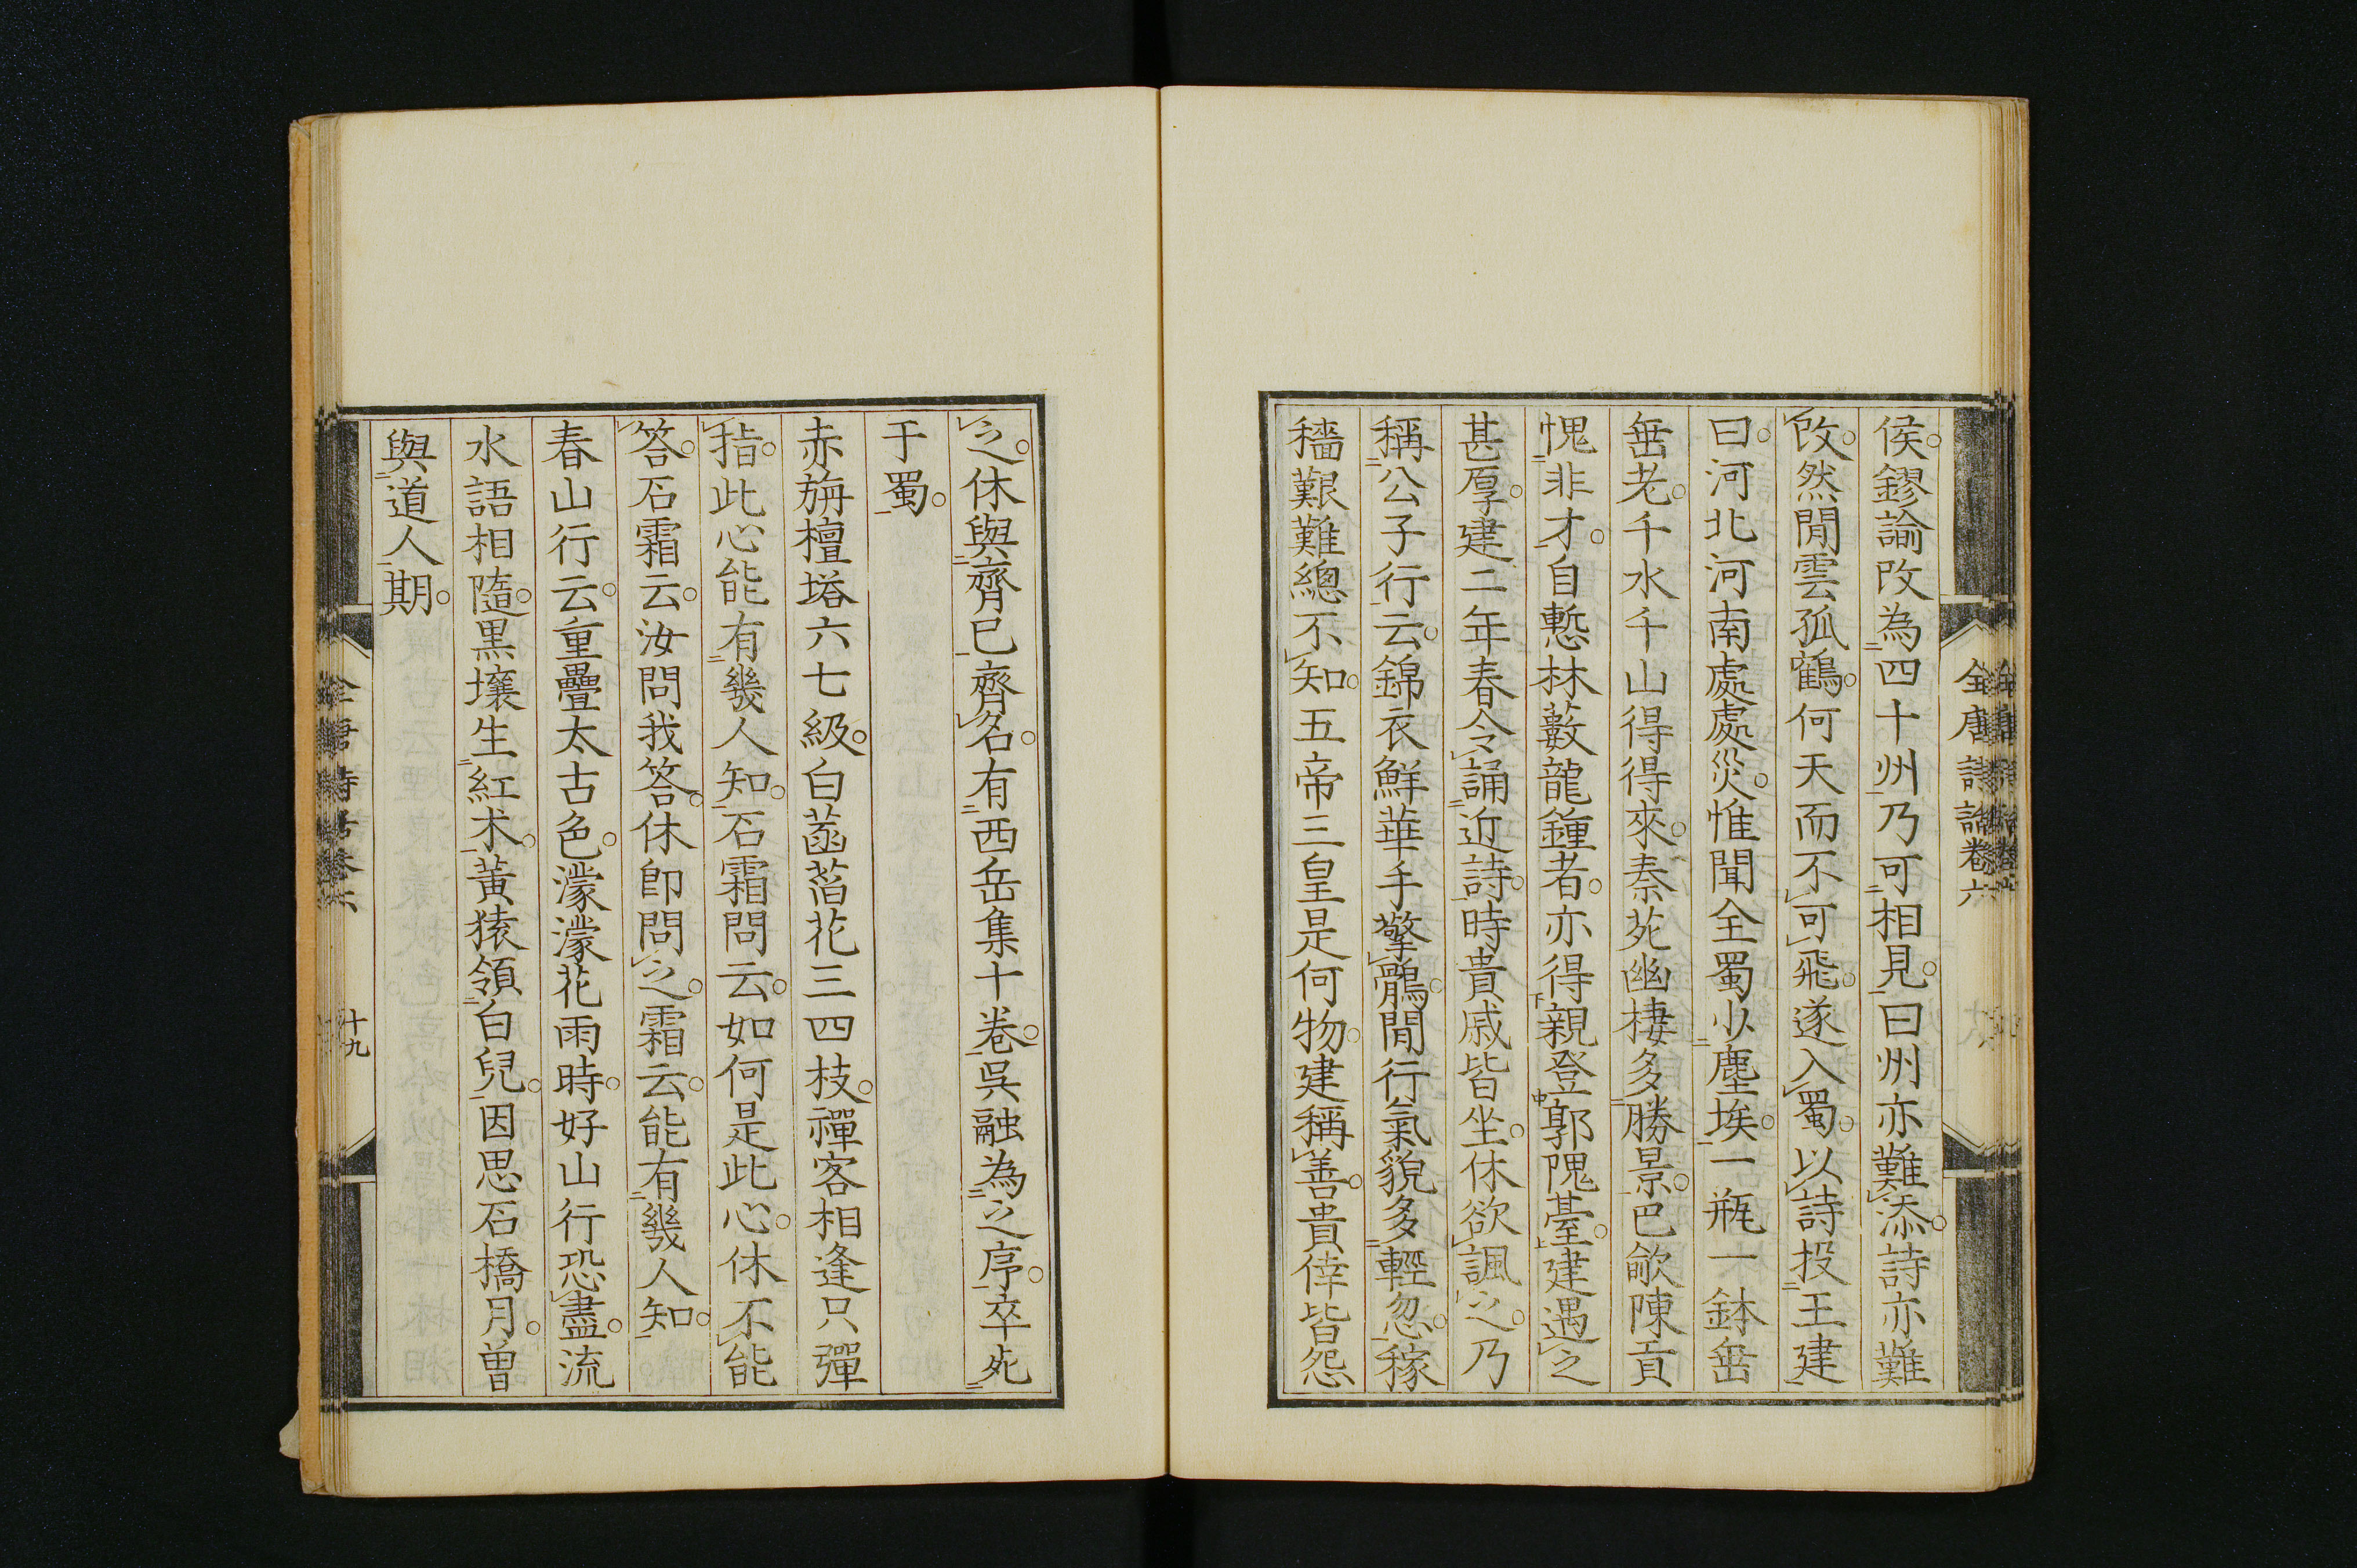 全唐詩話卷六
侯鏐諭改為四十州乃可相見曰州亦難添詩亦難
改然閒雲孤鶴何天而不可飛遂入蜀以詩投王建
曰河北河南處處災惟聞全蜀少塵埃一瓶一鉢垂
垂老千水千山得得來秦苑幽棲多勝景巴歈陳貢
愧非才自慙林藪龍鍾者亦得親登郭隗臺建遇之
甚厚建二年春令誦近詩時貴戚皆坐休欲諷之乃
稱公子行云錦衣鮮華手擎鶻閒行氣貌多輕忽稼
穡艱難總不知五帝三皇是何物建稱善貴倖皆怨
之休與齊已齊名有西岳集十卷吳融為之序卒死
于蜀
赤旃檀塔六七級白菡萏花三四枝禪客相逢只彈
指此心能有幾人知石霜問云如何是此心休不能
答石霜云汝問我答休卽問之霜云能有幾人知
春山行云重疊太古色濛濛花雨時好山行恐盡流
水語相隨黑壤生紅朮黃猿領白兒因思石橋月曾
與道人期
全唐詩話卷六
十九